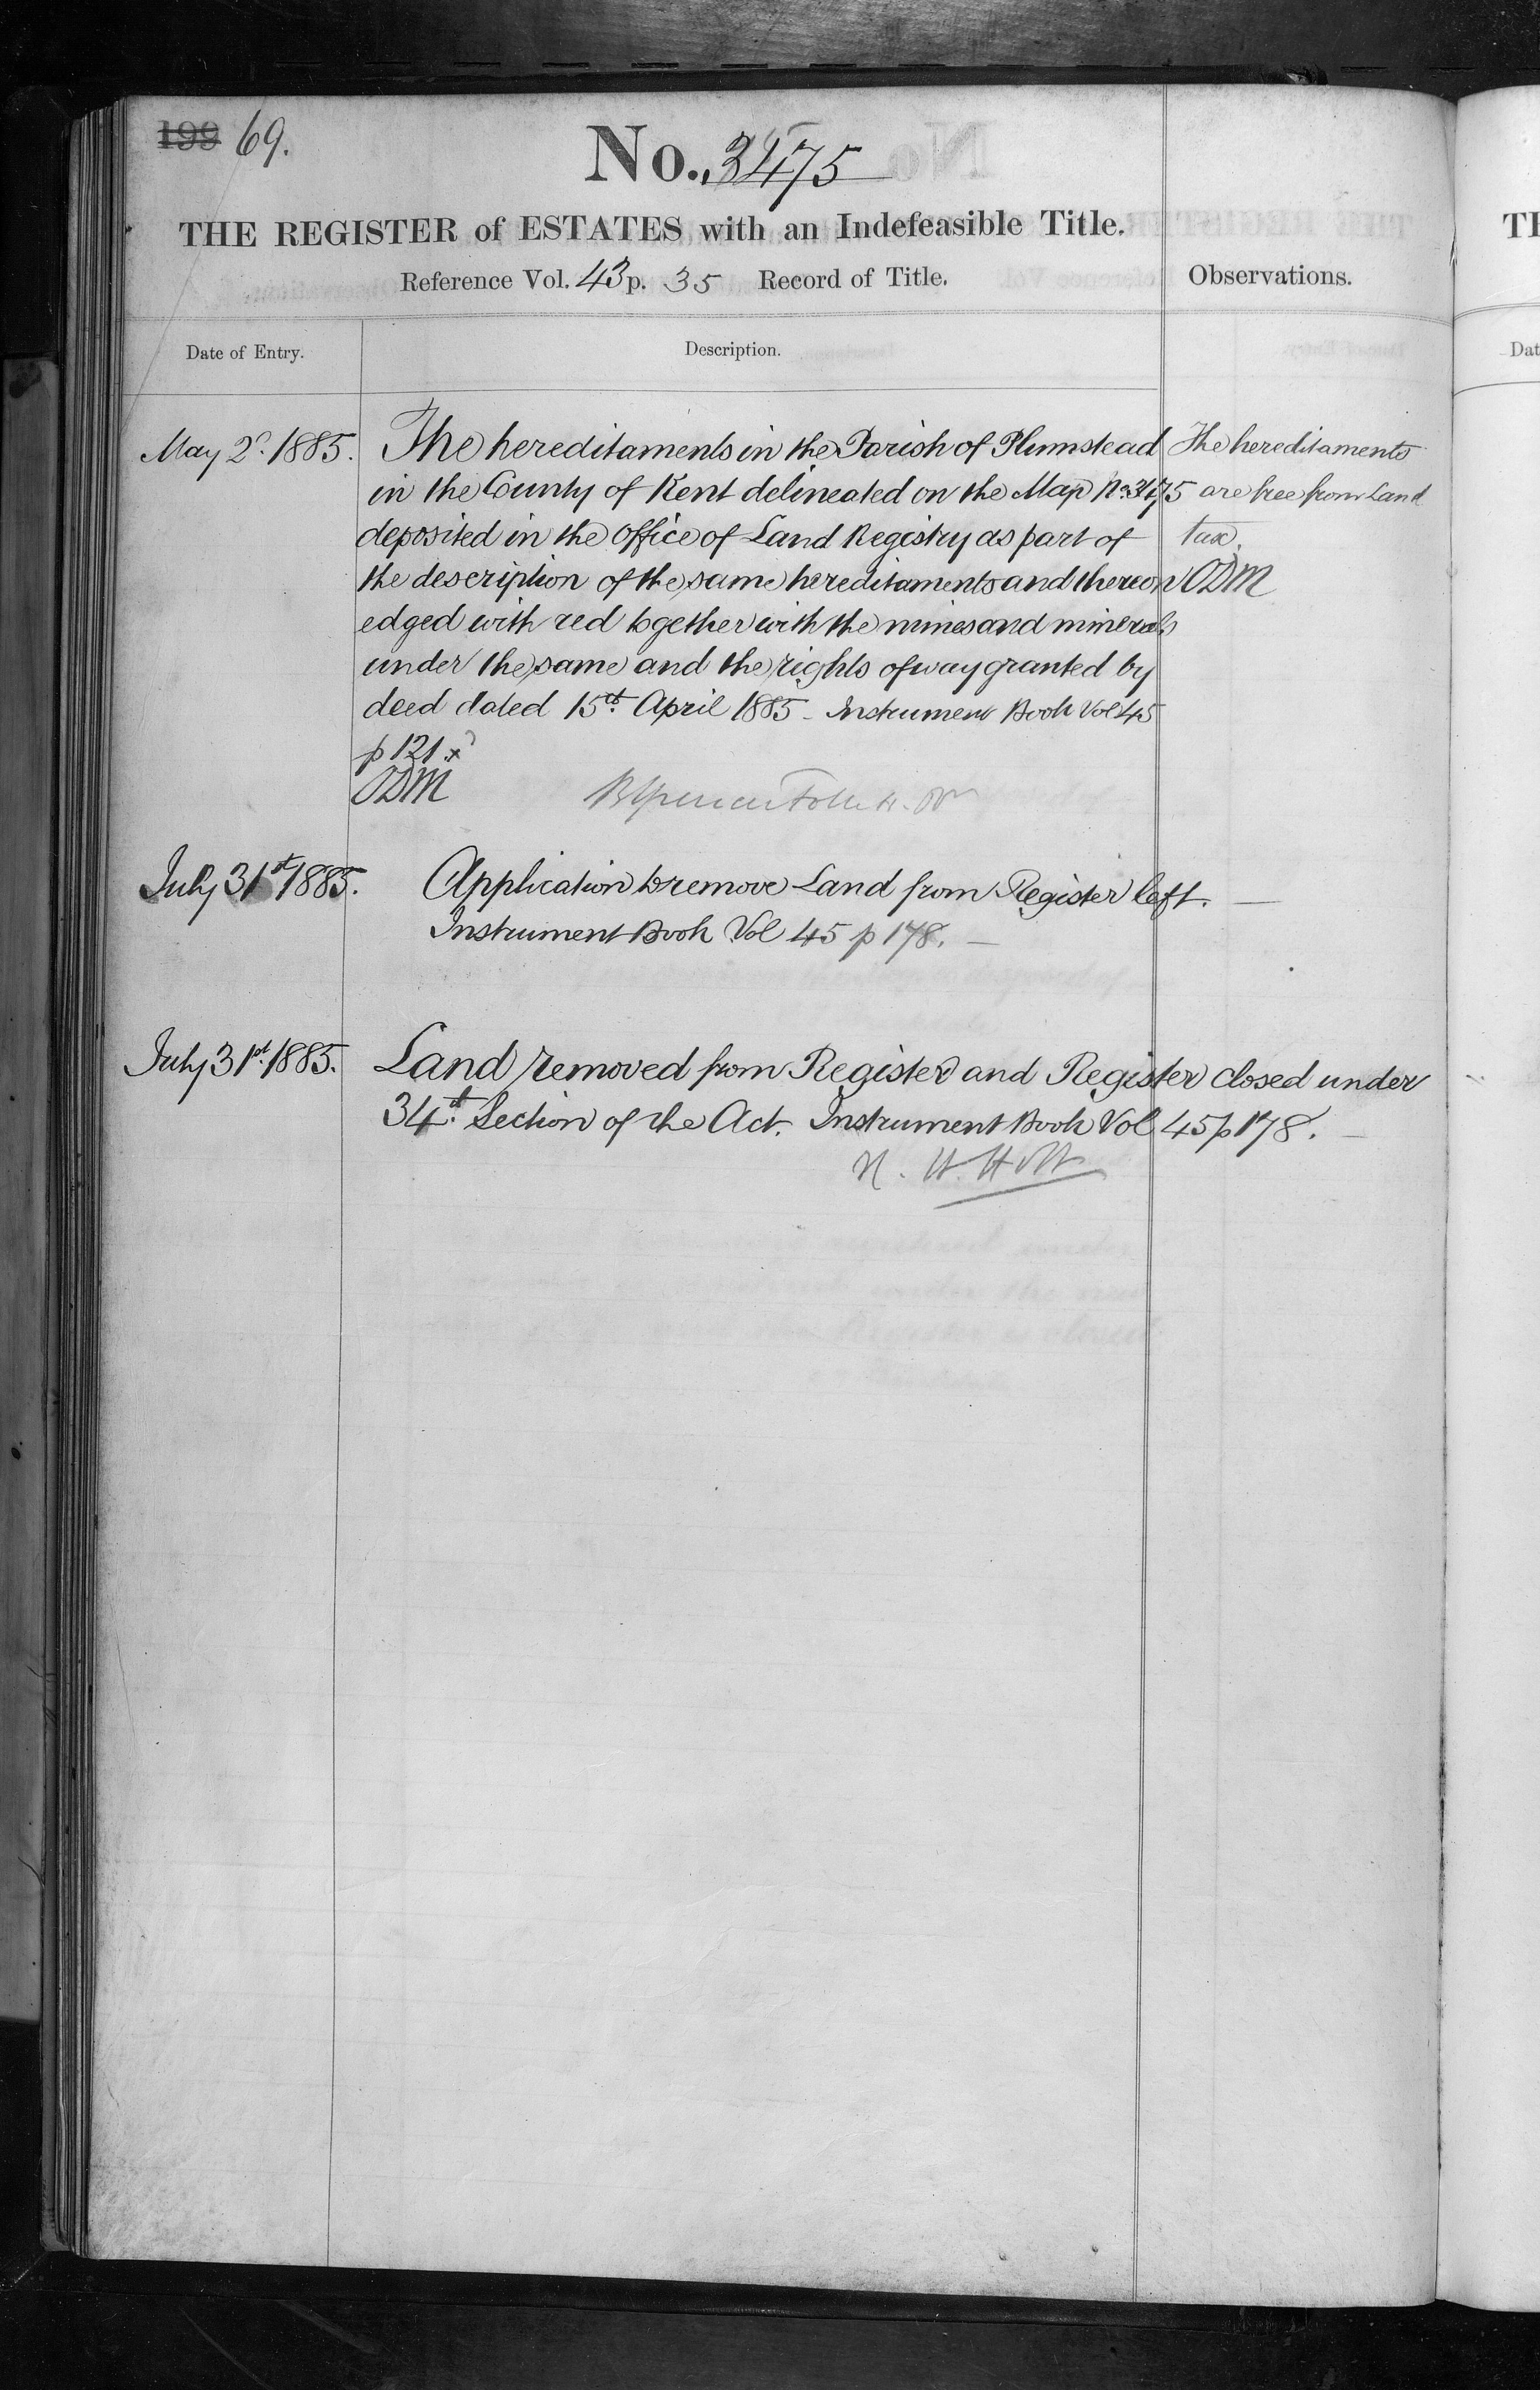 199 69.
No. 3475
THE REGISTER of ESTATES with an Indefeasible Title.
Reference Vol. 43 p. 35 Record of Title.
Observations.
Date of Entry.
Description.
May 2d. 1885.
The hereditaments in the Parish of Plumstead
in the County of Kent delineated on the Map No. 3475
deposited in the office of Land Registry as part of
the description of the same hereditaments and thereon
edged with red together with the mines and minerals
under the same and the rights of way granted by
deed dated 15th. April 1885 - Instrument Book Vol 45
p 121 x
The hereditaments
are free from Land
tax.
July 31st 1885.
Application to remove Land from Register left. —
Instrument Book Vol 45 p 178. —
July 31st. 1885.
Land removed from Register and Register closed under
34th. Section of the Act. Instrument Book Vol 45 p 178. —
Holt